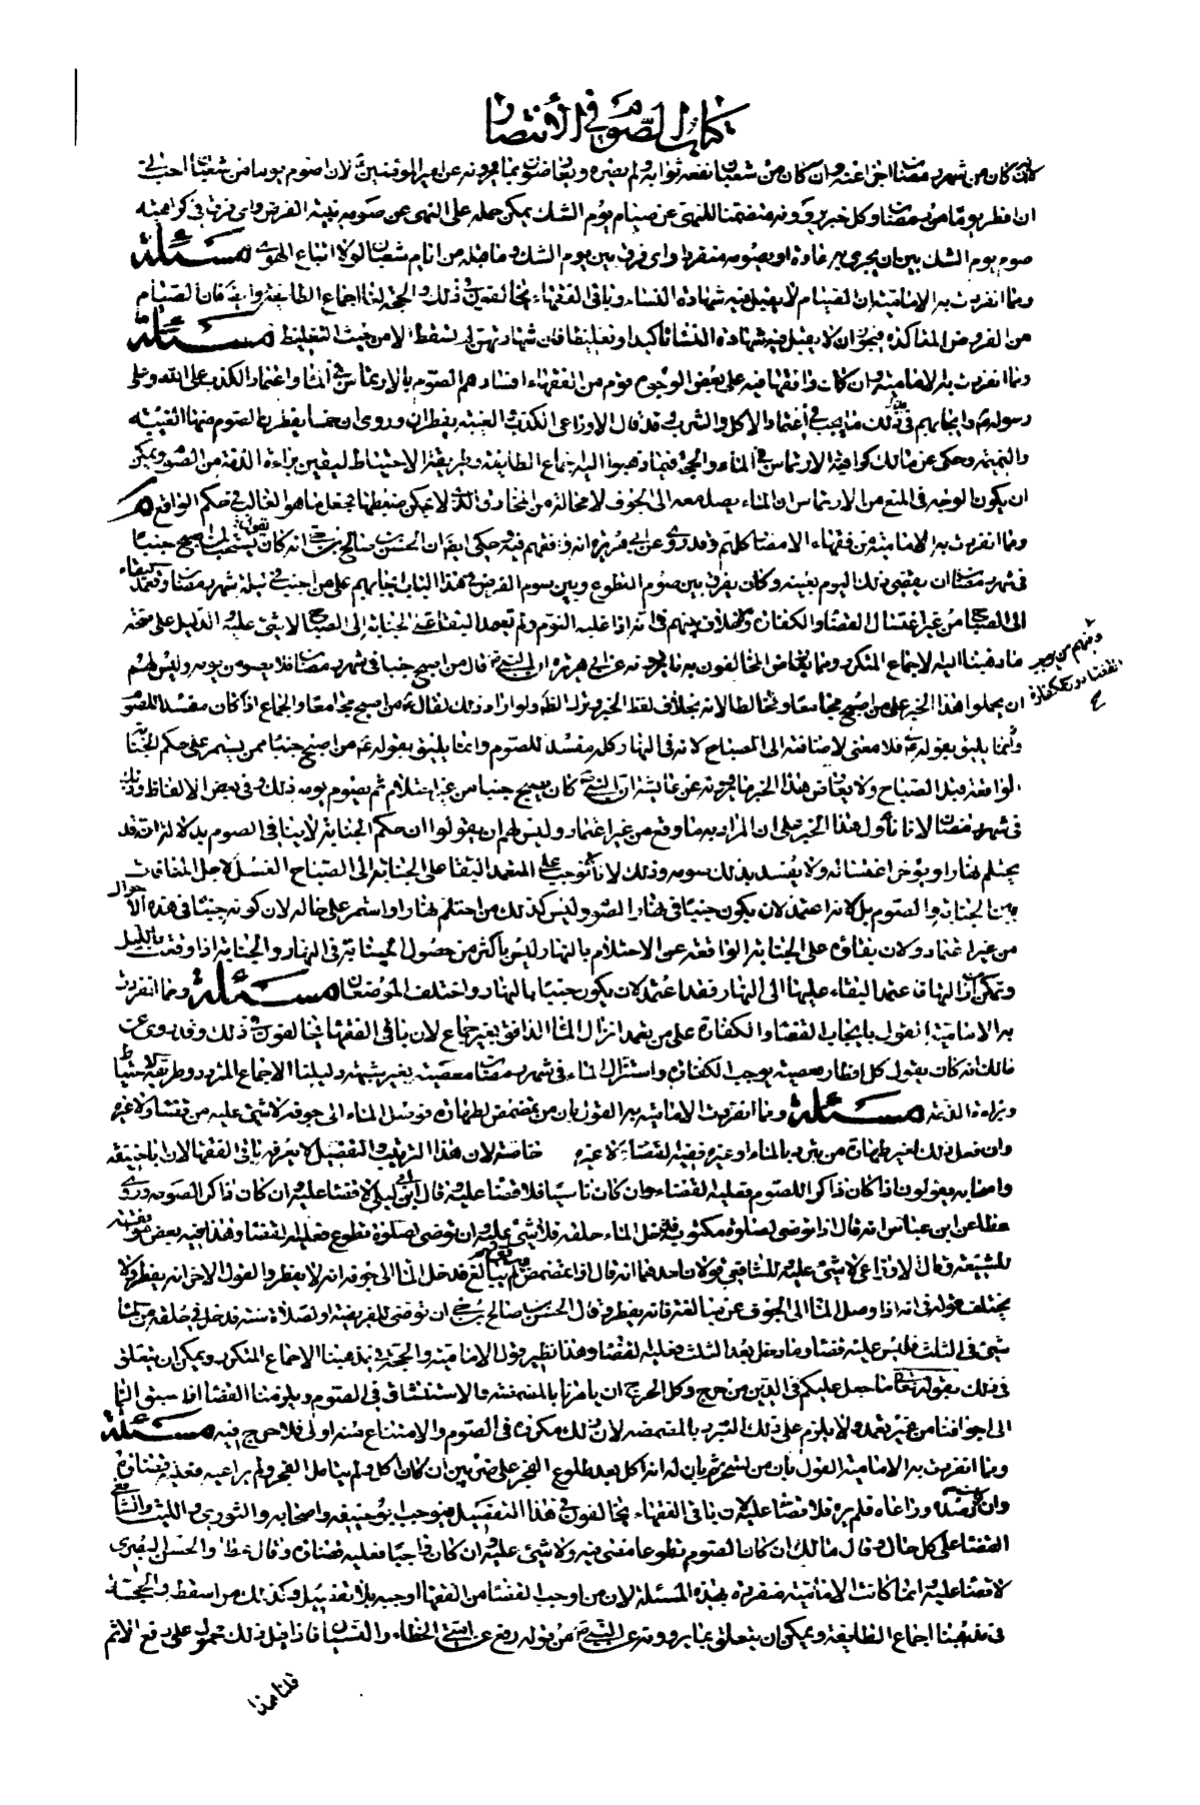 كتاب الصوم في الانتصار
كان من شهر رمضان اجزأ عنه وان كان من شعبان نفعه ثوابه ولم يضره ويعارضون بما يروونه عن امير المؤمنين لان اصوم يوما من شعبان احب الى
ان افطر يوما من رمضان وكل خبر يروونه متضمنا للنهى عن صيام يوم الشك يمكن حمله على النهى عن صومه بنية الفرض واى فرق في كراهية
صوم يوم الشك بين ان يجرى به عادة او يصومه منفردا واى فرق بين يوم الشك وما قبله من ايام شعبان لولا اتباع الهوى مسئلة
ومما انفردت به الامامية ان الصيام لا يقبل فيه شهادة النساء وباقى الفقهاء يخالفون في ذلك والحجة لنا اجماع الطايفة وايضا فان الصيام
من الفروض المتأكدة فيجوز ان لا يقبل فيه شهادة النساء تأكيدا وتغليظا فان شهادتهن لم تسقط الا من حيث التغليظ مسئلة
ومما انفردت به الامامية وان كان وافقها فيه على بعض الوجوه قوم من الفقهاء افسادهم الصوم بالارتماس في الماء واعتماد الكذب على الله وعلى
رسوله وايجابهم في ذلك ما يجب في اعتماد الاكل والشرب وقد قال الاوزاعى الكذب والغيبة يفطران وروى ان خمسا يفطرن الصوم منها الغيبة
والنميمة وحكى عن مالك كراهية الارتماس في الماء والحجة فيما ذهبوا اليه اجماع الطايفة وطريقة الاحتياط ليقين براءة الذمة من الصوم ويمكن
ان يكون الوجه في المنع من الارتماس ان الماء يصل معه الى الجوف لا محالة من المخارق الذى لا يمكن ضبطها فجعل ما هو الغالب في حكم الواقع
ومما انفردت به الامامية من فقهاء الامصار كلهم وقد روى عن ابى هريرة انه وافقهم فيه وحكى ايضا ان الحسن بن صالح بن حى انه كان يستحب لمن اصبح جنبا
في شهر رمضان ان يقضى ذلك اليوم بعينه وكان يفرق بين صوم التطوع وبين صوم الفرض في هذا الباب ايجابهم على من اجنب في ليلة شهر رمضان وتعمد البقاء
الى الصباح من غير اغتسال القضاء والكفارة ولا خلاف بينهم في انه اذا غلبه النوم ولم يتعمد البقاء على الجنابة الى الصباح لا شئ عليه الدليل على صحة
ومنهم من يوجب
القضاء دون الكفارة
ما ذهبنا اليه الاجماع المتكرر ومما يعارض المخالفون به ما يروونه عن ابى هريرة ان النبى قال من اصبح جنبا في شهر رمضان فلا يصومن يومه وليس لهم
ان يحملوا هذا الخبر على من اصبح مجامعا ومخالطا لانه بخلاف لفظ الخبر وترك الظاهر ولو اراد ذلك لقال من اصبح مجامعا والجماع اذا كان مفسدا للصوم
فلا معنى لاضافته الى الصباح لانه في النهار كله مفسد للصوم وانما يليق بقوله من اصبح جنبا ممن يستمر على حكم الجنابة
الواقعة قبل الصباح ولا يعارض هذا الخبر ما يروونه عن عايشة ان النبى كان يصبح جنبا من غير احتلام ثم يصوم يومه ذلك وفى بعض الالفاظ وذلك
في شهر رمضان لانا نأول هذا الخبر على ان المراد به ما وقع من غير اعتماد وليس لهم ان يقولوا ان حكم الجنابة لا ينافى الصوم بدلالة انه قد
يحتلم نهارا ويؤخر اغتساله ولا يفسد بذلك صومه وذلك لانا لم نوجب على المتعمد البقاء على الجنابة الى الصباح الغسل لاجل المنافات
بين الجنابة والصوم بل لانه اعتمد لان يكون جنبا في نهار الصوم وليس كذلك من احتلم نهارا واستمر على حاله لان كونه جنبا في هذه الاحوال
من غير اعتماد ولان بقاؤه على الجنابة الواقعة عن الاحتلام بالنهار ليس باكثر من حصول الجنابة في النهار والجنابة اذا وقعت بالليل
وتمكن من ازالتها فاعتمد البقاء عليها الى النهار فقد اعتمد لان يكون جنبا بالنهار واختلف الموضعان مسئلة ومما انفردت
به الامامية القول بايجاب القضاء والكفارة على من تعمد انزال الماء الدافق بغير جماع لان باقى الفقهاء يخالفون في ذلك وقد روى عن
مالك انه كان يقول كل افطار بمعصية يوجب الكفارة واستنزال الماء في شهر رمضان معصية بغير شبهة دليلنا الاجماع المتردد وطريقة الاحتياط
وبراءة الذمة مسئلة ومما انفردت الامامية به القول بان من تمضمض لطهارة فوصل الماء الى جوفه لا شئ عليه من قضاء ولا غيره
وان فعل ذلك لغير طهارة من تبرد بالماء او غيره ففيه القضاء لا غيره خاصة لان هذا الترتيب والتفصيل لا يعرفه باقى الفقهاء لان ابا حنيفة
واصحابه يقولون اذا كان ذاكرا للصوم فعليه القضاء وان كان ناسيا فلا قضاء عليه وقال ابن ابى ليلى لا قضاء عليه وان كان ذاكرا لصومه وروى
عطا عن ابن عباس انه قال اذا توضى لصلوة مكتوبة فدخل الماء حلقه فلا شئ عليه وان توضى لصلوة تطوع فعليه القضاء وهذا فيه بعض
للشيعة وقال الاوزاعى لا شئ عليه وللشافعى قولان احدهما انه قال اذا تمضمض ولم يبالغ فدخل الماء الى جوفه انه لا يفطر والقول الاخر انه يفطر ولا
يختلف قوله في انه اذا وصل الماء الى الجوف عن مبالغة فانه يفطر وقال الحسن بن صالح بن حى ان توضى للفريضة او لصلاة سنة فدخل في حلقه من الماء
شئ في الثلث فليس عليه قضاء وما دخل بعد الثلث فعليه القضاء وهذا نظير قول الامامية والحجة في مذهبنا الاجماع المتكرر ويمكن ان يتعلق
في ذلك بقوله تعالى ما جعل عليكم في الدين من حرج وكل الحرج ان يامرنا بالمضمضة والاستنشاق في الصوم ويلزمنا القضاء اذا سبق الماء
الى اجوافنا من غير تعمد ولا يلزم على ذلك التبرد بالمضمضة لان ذلك مكروه في الصوم والامتناع منه اولى فلا حرج فيه مسئلة
ومما انفردت به الامامية القول بان من تسحر ثم بان له انه اكل بعد طلوع الفجر على ضربين ان كان اكل ولم يتامل الفجر ولم يراعيه فعليه قضاؤه
وان كان رصده وراعاه فلم يره فلا قضاء عليه لان باقى الفقهاء يخالفون في هذا التفصيل فيوجب ابو حنيفة واصحابه والثورى والليث والشافعى
القضاء على كل حال وقال مالك ان كان الصوم تطوعا مضى فيه ولا شئ عليه وان كان واجبا فعليه قضاؤه وقال عطا والحسن البصرى
لا قضاء عليه وانما كانت الامامية منفردة بهذه المسئلة لان من اوجب القضاء من الفقهاء اوجبه بلا تفصيل وكذلك من اسقطه والحجة
في مذهبنا اجماع الطايفة ويمكن ان يتعلق بما يروونه عن النبى من قوله رفع عن امتى الخطاء والنسيان فاذا قيل ذلك محمول على رفع الاثم
قلنا هذا